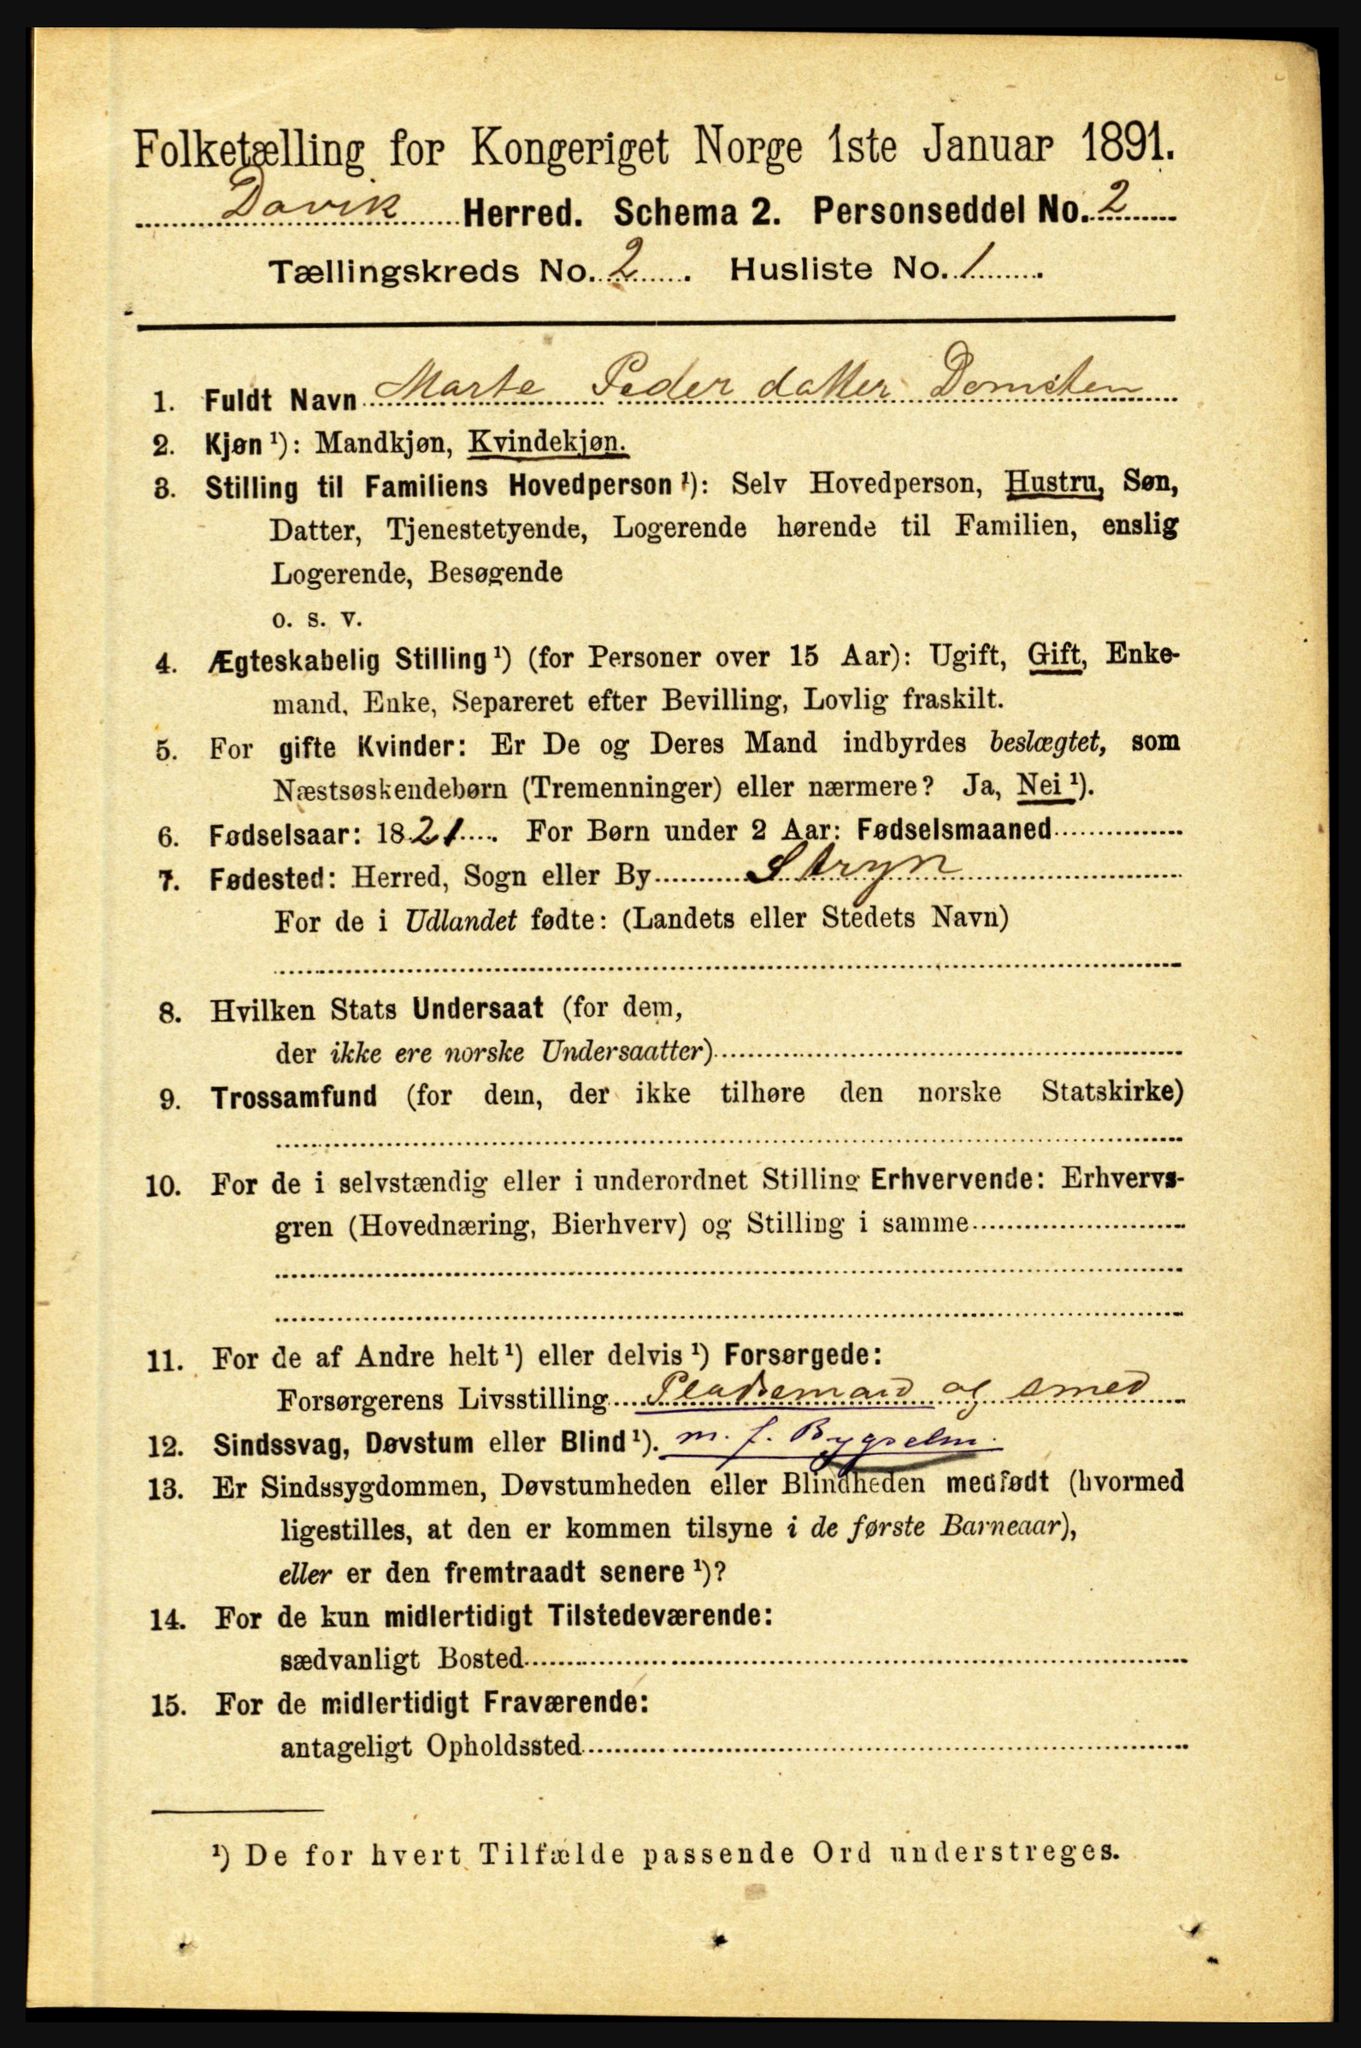 Folketælling for Kongeriget Norge 1ste Januar 1891.
Davik Herred. Schema 2. Personseddel No. 2
Tællingskreds No. 2. Husliste No. 1.
1. Fuldt Navn Marte Pederdatter Domsten
2. Kjøn ¹): Mandkjøn, Kvindekjøn.
3. Stilling til Familiens Hovedperson ¹): Selv Hovedperson, Hustru, Søn,
Datter, Tjenestetyende, Logerende hørende til Familien, enslig
Logerende, Besøgende
o. s. v.
4. Ægteskabelig Stilling ¹) (for Personer over 15 Aar): Ugift, Gift, Enke-
mand, Enke, Separeret efter Bevilling, Lovlig fraskilt.
5. For gifte Kvinder: Er De og Deres Mand indbyrdes beslægtet, som
Næstsøskendebørn (Tremenninger) eller nærmere? Ja, Nei ¹).
6. Fødselsaar: 1821. For Børn under 2 Aar: Fødselsmaaned
7. Fødested: Herred, Sogn eller By Stryn
For de i Udlandet fødte: (Landets eller Stedets Navn)
8. Hvilken Stats Undersaat (for dem,
der ikke ere norske Undersaatter)
9. Trossamfund (for dem, der ikke tilhøre den norske Statskirke)
10. For de i selvstændig eller i underordnet Stilling Erhvervende: Erhvervs-
gren (Hovednæring, Bierhverv) og Stilling i samme
11. For de af Andre helt ¹) eller delvis ¹) Forsørgede:
Forsørgerens Livsstilling Pladsemand og smed
12. Sindssvag, Døvstum eller Blind ¹). m. f. Bygselm.
13. Er Sindssygdommen, Døvstumheden eller Blindheden medfødt (hvormed
ligestilles, at den er kommen tilsyne i de første Barneaar),
eller er den fremtraadt senere ¹)?
14. For de kun midlertidigt Tilstedeværende:
sædvanligt Bosted
15. For de midlertidigt Fraværende:
antageligt Opholdssted
¹) De for hvert Tilfælde passende Ord understreges.